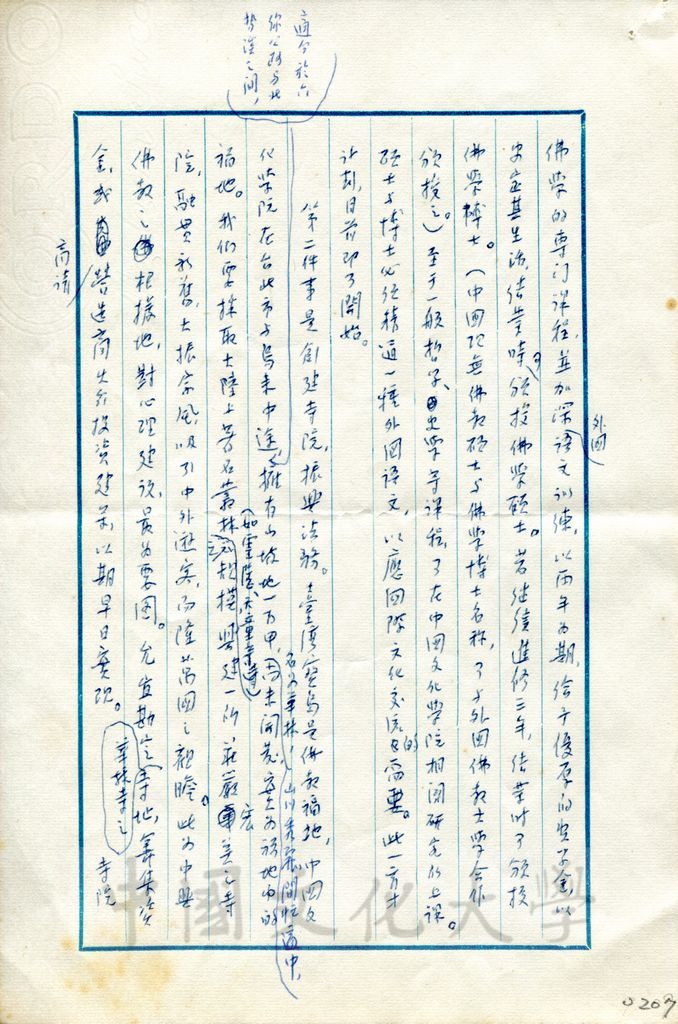 佛學的專门課程,並加深外國語文訓練,以两年為期,給予優厚的奖学金,以
安定其生活,結業時可頒授佛學碩士。若继續進修三年,結業时可頒授
佛學博士。(中國现無佛教碩士与佛學博士名称,可与外國佛教大學合作
頒授之。)至于一般哲学、史學等課程,可在中國文化學院相関研究所上課。
碩士与博士必须精通一種外國語文,以應國際文化交流的需要。此一方
計劃,目前即可開始。
第二件事是創建寺院,振興法務。臺灣寶島是佛教福地,中國文
化學院在台北市与烏来中途,擁有山坡地一百甲,
適介於六
你公路与北
勢溪之间,
名为華林,山川秀麗,
因未開發,
福地。我们要採取大陸上著名叢林(如靈隱、天童等寺)之規模,興建一所莊嚴宏
院,融貫新舊,大振宗風,吸引中外遊客,而隆萬國之觀瞻。此为中興
佛教之根據地,對心理建設,最为要圖。允宜勘定寺地,籌集資
金,或高請營造商先行投資建築,以期早日實现。
華林寺之
寺院
中國文化大學
0207